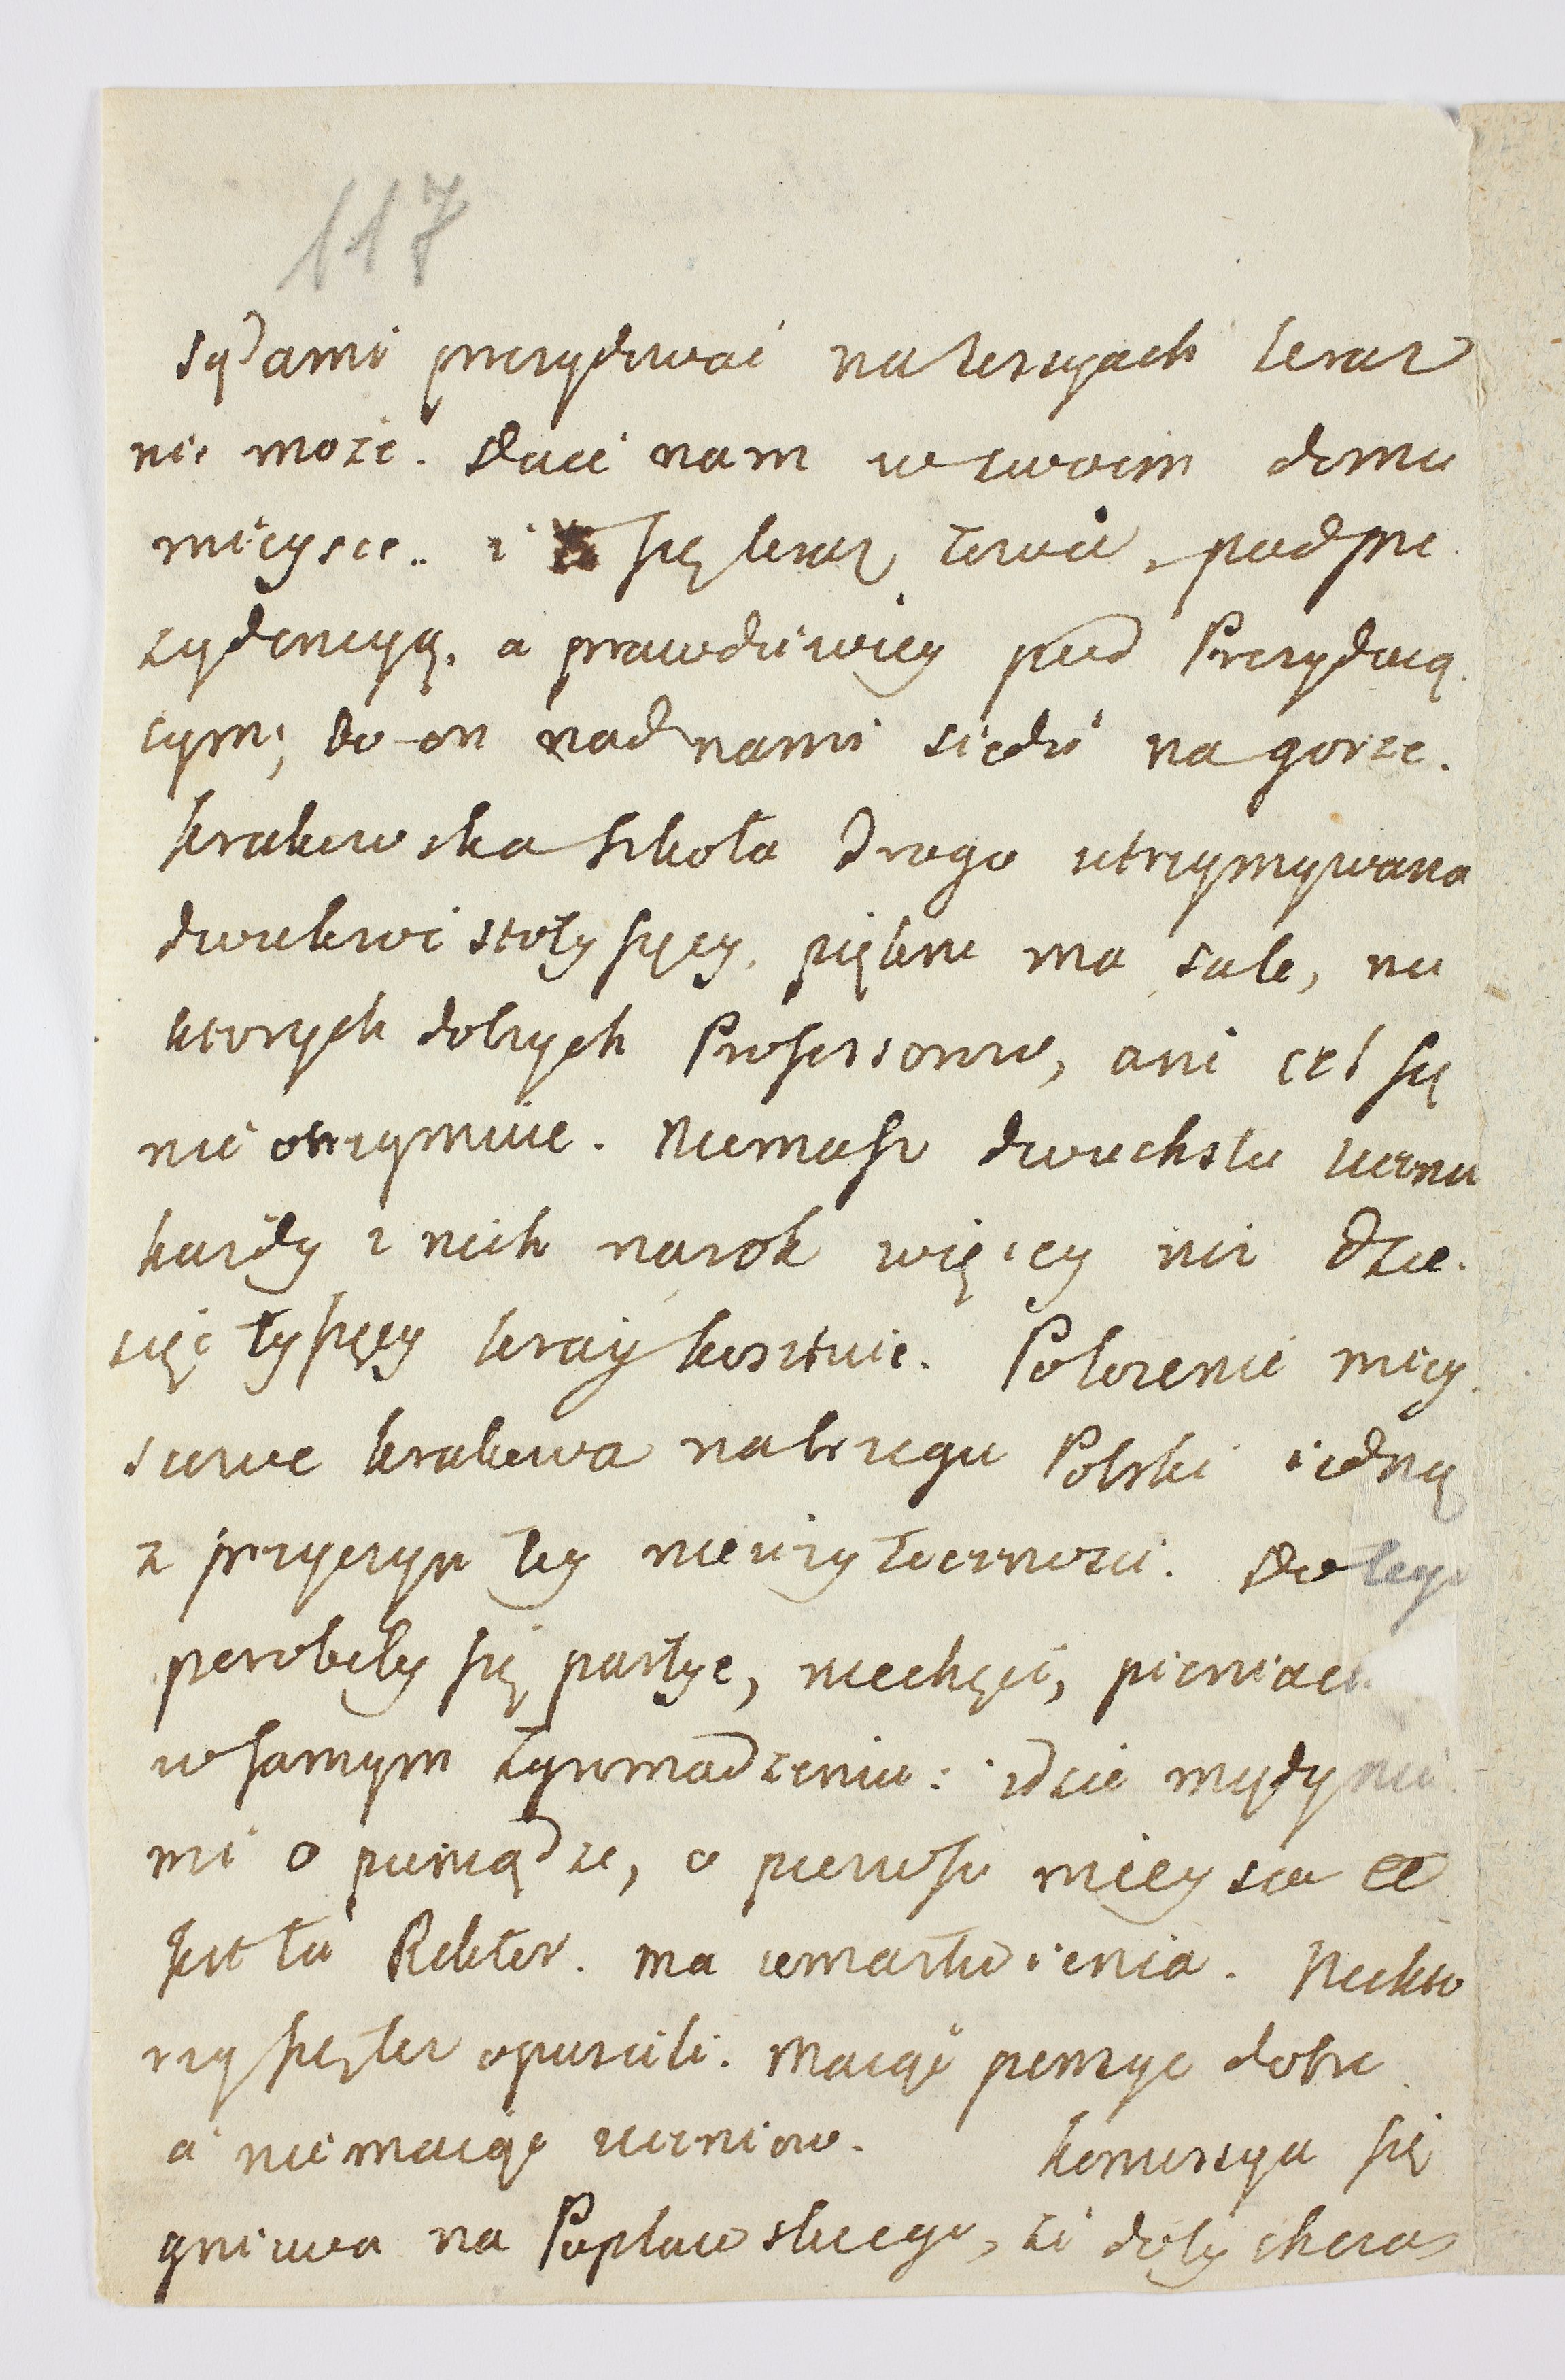 117
sądami prezydować na sessyach teraz
nie może. Daie nam w swoim domu
mieysce.. i się teraz zowie, pod pre
zydencyą, a prawdziwiey pod Prezyduią
cym; bo on nad nami siedzi na gorze.
Krakowska szkoła drogo utrzymywana
dwakroć sto tysięcy, piękne ma sale, na
ktorych dobrych Professorow, ani cel się
nie otrzymuie. Niemasz dwuchstu uczniu
każdy z nich narok więcy niż dzie.
sięć tysięcy kray kosztuie. Położenie miey
scowe Krakowa nabrzegu Polski iedną
z przyczyn tey nieużyteczności. Do tego
porobiły się partye, niechęci, pieniac
w samym zgromadzeniu: idzie między nie
mi o pieniądze, o pierwsze mieysca etc
Jest tu Rektor. ma umartwienia. Niekto
rzy się też opuscili. Maiąc pensye dobre
a nie maiąc uczniow. Komissya się
gniewa na Popławskiego, że dotychczas